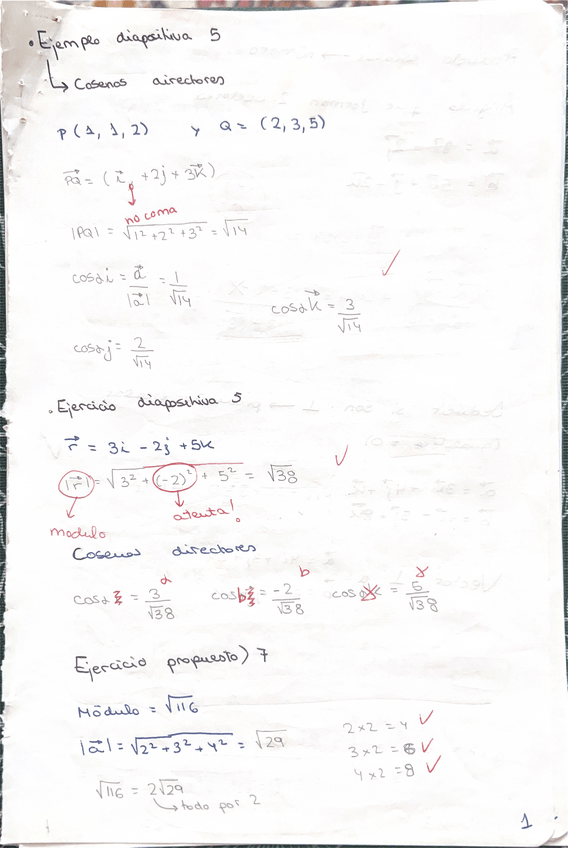 • Ejemplo diapositiva 5
↳ Cosenos directores
P(1, 1, 2) y Q = (2, 3, 5)
P⃗Q = (i⃗, + 2j + 3k⃗)
no coma
|PQ| = √(1² + 2² + 3²) = √14
cosαi = a⃗/|a⃗| = 1/√14
cosαk⃗ = 3/√14 ✓
cosαj = 2/√14
• Ejercicio diapositiva 5
r⃗ = 3i - 2j + 5k
|r⃗| = √(3² + (-2)² + 5²) = √38 ✓
atenta!
modulo
Cosenos directores
cosα = 3/√38 α
cosb = -2/√38 b
cos = 5/√38 γ
Ejercicio propuesto) 7
Módulo = √116
|a⃗| = √(2² + 3² + 4²) = √29
2 x 2 = 4 ✓
3 x 2 = 6 ✓
4 x 2 = 8 ✓
√116 = 2√29
↳ todo por 2
1